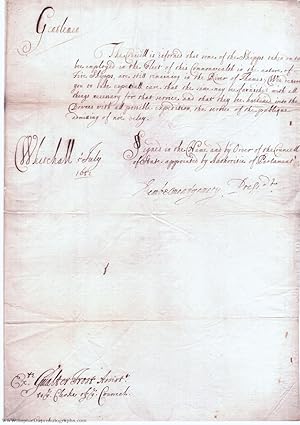 Gentlemen
The Councill is informed that some of the Shipps taken on to
be employed in the Fleet of the Commonwealth in the nature of
Shipps are still remaining in the River of Thames. We
you to take especiall care, that the same may be furnished with all
things necessary for that service, and that they be hastned into the
Downes with all possible expedition, the service of the publique
of noe delay.
Whitehall July
Signed in the Name and by Order of the Councell
of State appointed by Authoritie of Parliament
Presdt
Ext
Gualter Frost Assist
to ye Clerke of ye Councell